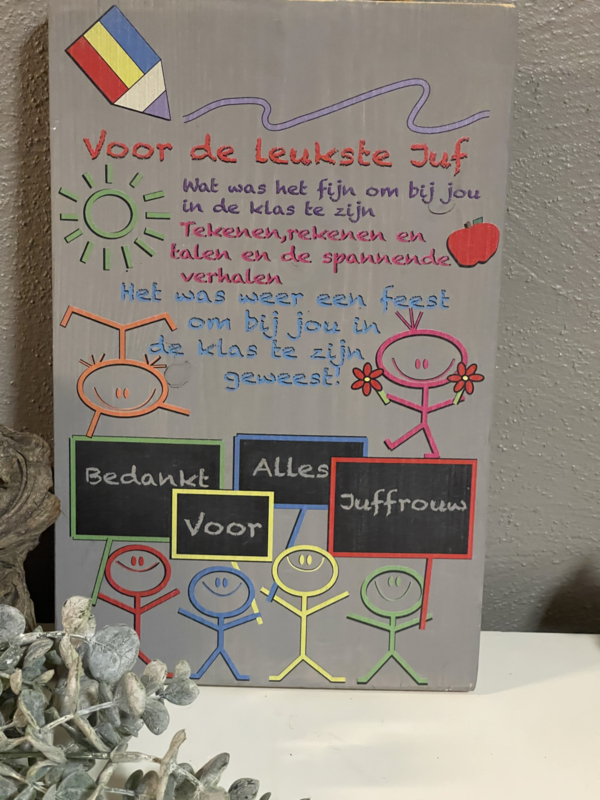 Voor de leukste Juf
Wat was het fijn om bij jou
in de klas te zijn
Tekenen,rekenen en
talen en de spannende
verhalen
Het was weer een feest
om bij jou in
de klas te zijn
geweest!
Bedankt
Voor
Alles
Juffrouw